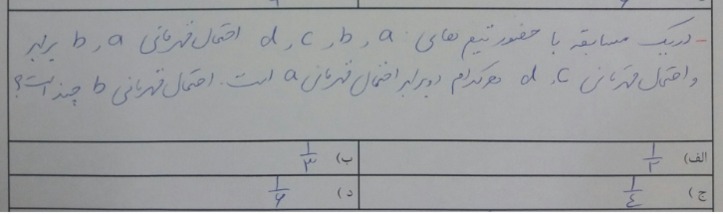 - در یک مسابقه با حضور تیم های a و b و c و d احتمال قهرمانی a و b برابر
و احتمال قهرمانی c و d هرکدام دوبرابر احتمال قهرمانی a است. احتمال قهرمانی b چند است؟
الف) ۱/۲ ب) ۱/۳
ج) ۱/٤ د) ۱/۶